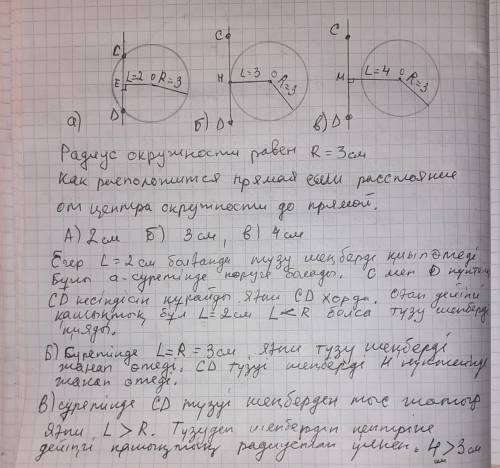 C C C
E L=2 O R=3 H L=3 O R=3 M L=4 O R=3
а) D Б) D В) D
Радиус окружности равен R = 3 см
Как расположится прямая если расстояние
от центра окружности до прямой.
А) 2 см Б) 3 см, В) 4 см
Егер L = 2 см болғанда түзу шеңберді қиып өтеді
Бұны а-суретінде көруге болады. C мен D нүктелері
CD кесіндісін құрайды яғни CD хорда. Оған дейінгі
қашықтық бұл L = 2 см L < R болса түзу шеңберді
қияды.
Б) Суретінде L = R = 3 см, яғни түзу шеңберді
жанап өтеді. CD түзуі шеңберді H нүктесінде
жанап өтеді.
В) суретінде CD түзуі шеңберден тыс жатыр
яғни L > R. Түзуден шеңбердің центріне
дейінгі қашықтық радиустан үлкен. 4 > 3 см
см